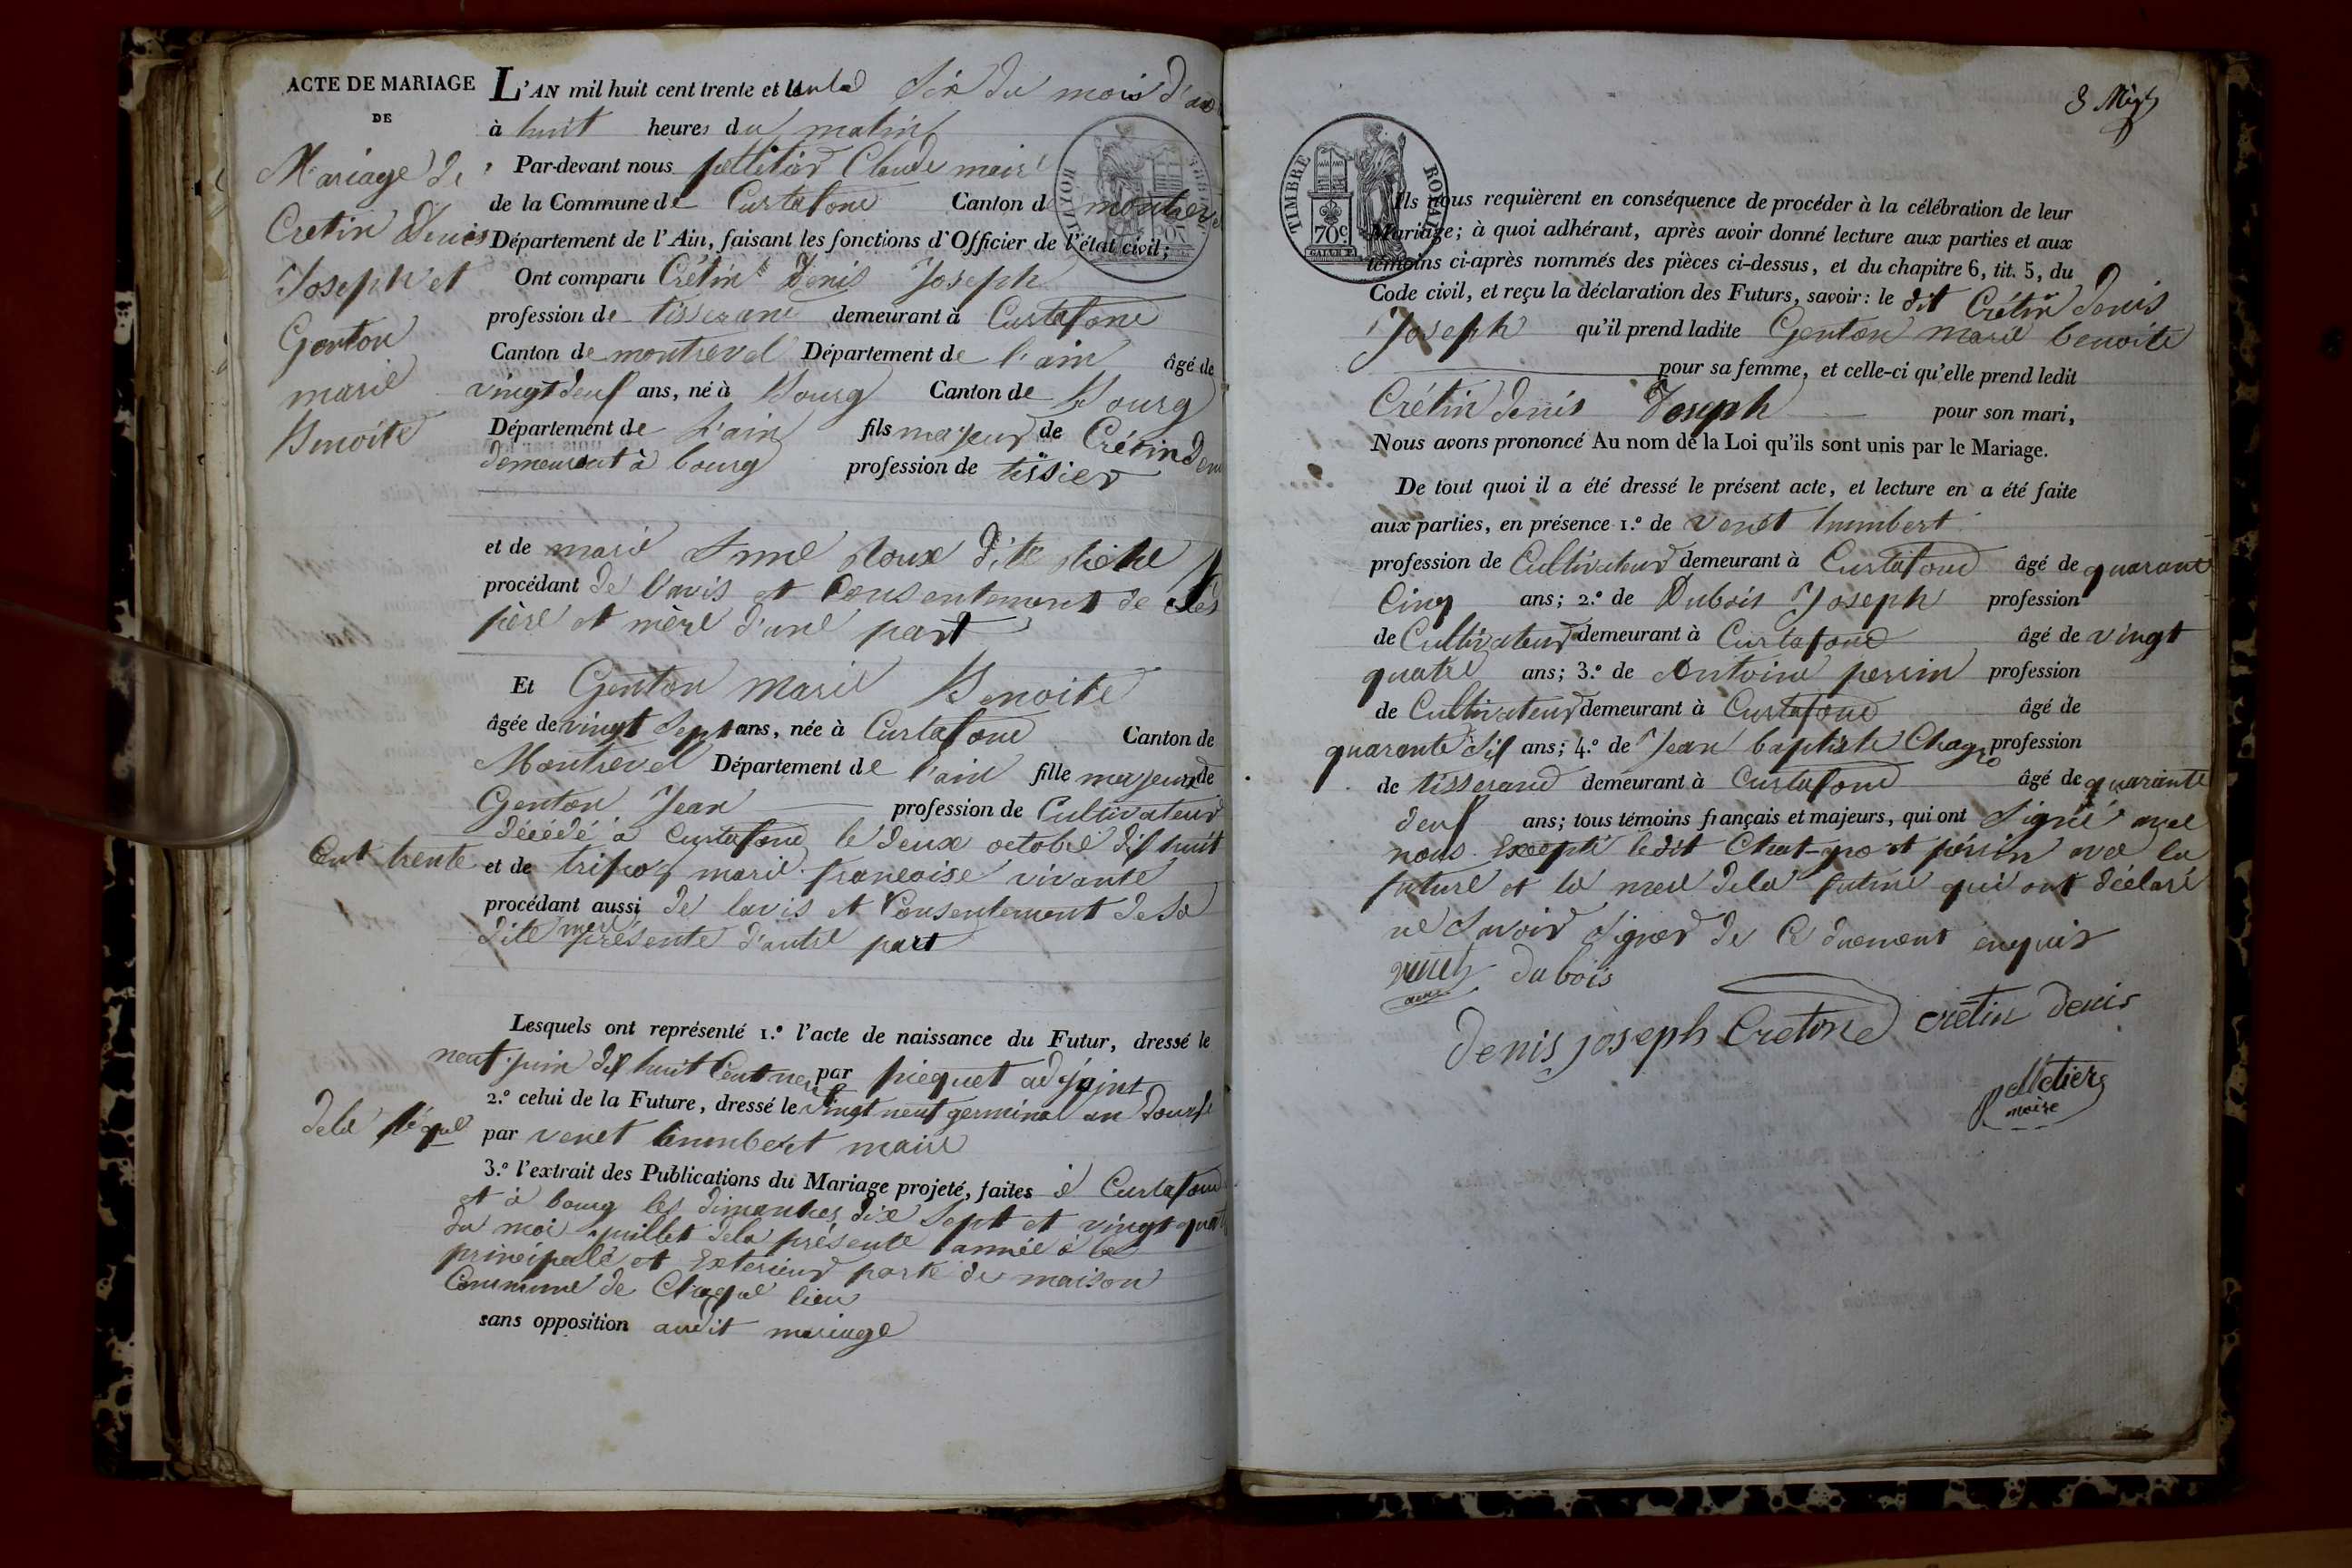 ACTE DE MARIAGE
DE
Mariage de
Cretin Denis
Joseph et
Genton
marie
Benoite
L'AN mil huit cent trente et un le Six du mois d'aou
à huit heures du matin
Par-devant nous pelletier Claude maire
de la Commune de Curtafond Canton de montreve
Département de l'Ain, faisant les fonctions d'Officier de l'état civil;
Ont comparu Crétin Denis Joseph
profession de tisserand demeurant à Curtafond
Canton de montrevel Département de l'ain âgé de
vingt deuf ans, né à Bourg Canton de Bourg
Département de L'ain fils majeur de Crétin Deni
demeurant à bourg profession de tissier
et de marie Anne
procédant de l'avis et Consentement de Ses
père et mère d'une part
Et Genton Marie Benoite
âgée de vingt Sept ans, née à Curtafond Canton de
Montrevel Département de l'ain fille majeure de
Genton Jean profession de Cultivateur
décédé à Curtafond le deux octobre dif huit
Cent trente et de marie francoise vivante
procédant aussi de lavis et Consentement de Sa
dite mere présente d'autre part
Lesquels ont représenté 1.º l'acte de naissance du Futur, dressé le
neuf juin dif huit Cent neuf par piequet adjoint
2.º celui de la Future, dressé le vingt neuf germinal an Douse
par venet humbert maire
3.º l'extrait des Publications du Mariage projeté, faites à Curtafond
et à bourg les dimanches dix Sept et vingt quat
du moi juillet dela présente année à la
principale et Exterieur porte de maison
Commune de Chaque lieu
sans opposition audit mariage
TIMBRE ROYAL
70c
Ils nous requièrent en conséquence de procéder à la célébration de leur
Mariage; à quoi adhérant, après avoir donné lecture aux parties et aux
témoins ci-après nommés des pièces ci-dessus, et du chapitre 6, tit. 5, du
Code civil, et reçu la déclaration des Futurs, savoir: le dit Crétin denis
Joseph qu'il prend ladite Genton marie benoite
pour sa femme, et celle-ci qu'elle prend ledit
Crétin denis Joseph pour son mari,
Nous avons prononcé Au nom de la Loi qu'ils sont unis par le Mariage.
De tout quoi il a été dressé le présent acte, et lecture en a été faite
aux parties, en présence 1.º de venet humbert
profession de Cultivateur demeurant à Curtafond âgé de quarante
Cinq ans; 2.º de Dubois Joseph profession
de Cultivateur demeurant à Curtafond âgé de vingt
quatre ans; 3.º de Antoine perrin profession
de Cultivateur demeurant à Curtafond âgé de
quarante dif ans; 4.º de Jean baptiste Chagro profession
de tisserand demeurant à Curtafond âgé de quarante
deuf ans; tous témoins français et majeurs, qui ont Signé avec
nous Excepté ledit Chat-gro et périin avec la
future et la mere dela future qui ont déclaré
ne Savoir Signer de Ce duement enquis
venet dubois
denis joseph Cretin crétin denis
pelletier
maire